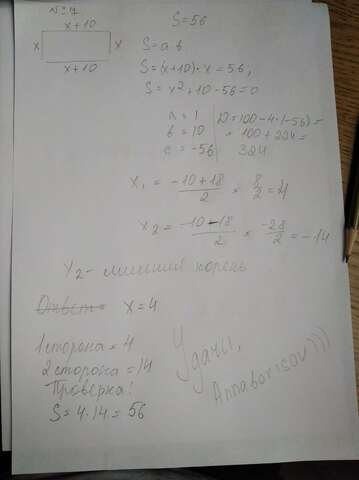 №7
x+10
x x
x+10
S=56
S=a·b
S=(x+10)·x=56,
S=x²+10-56=0
a=1
b=10
c=-56
D=100-4·(-56)=
=100+224=
324
x₁ = -10+18/2 = 8/2 = 4
x₂ = -10-18/2 = -28/2 = -14
x₂ - лишний корень
Ответ= x=4
1 сторона=4
2 сторона=14
Проверка!
S=4·14=56
Удачи,
Annaborisov)))